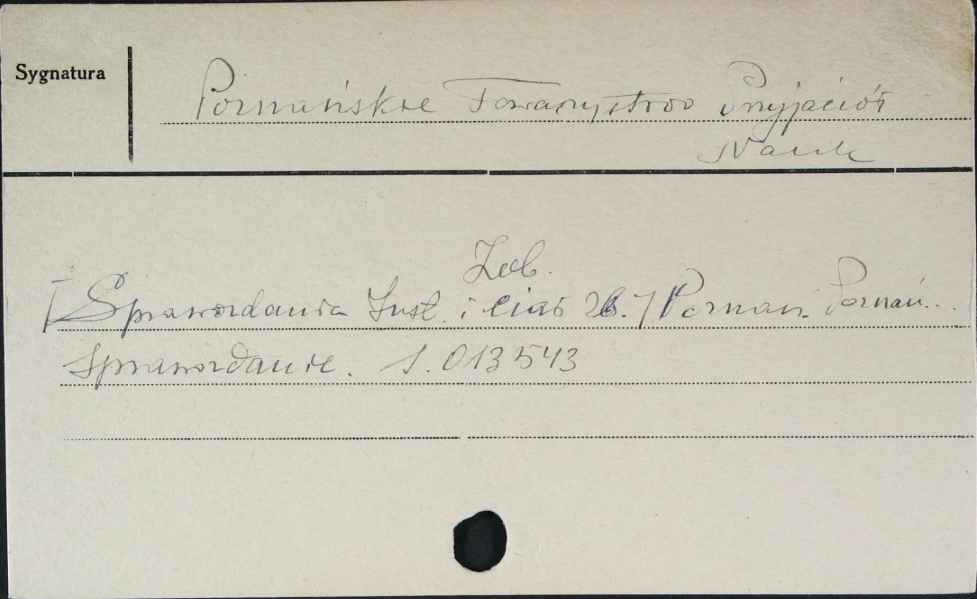 Sygnatura
Poznańskie Towarzystwo Przyjaciół
Nauk
Zob.
[Sprawozdania Inst. i 26.] Poznań. Poznań.
Sprawozdanie. S. 013543